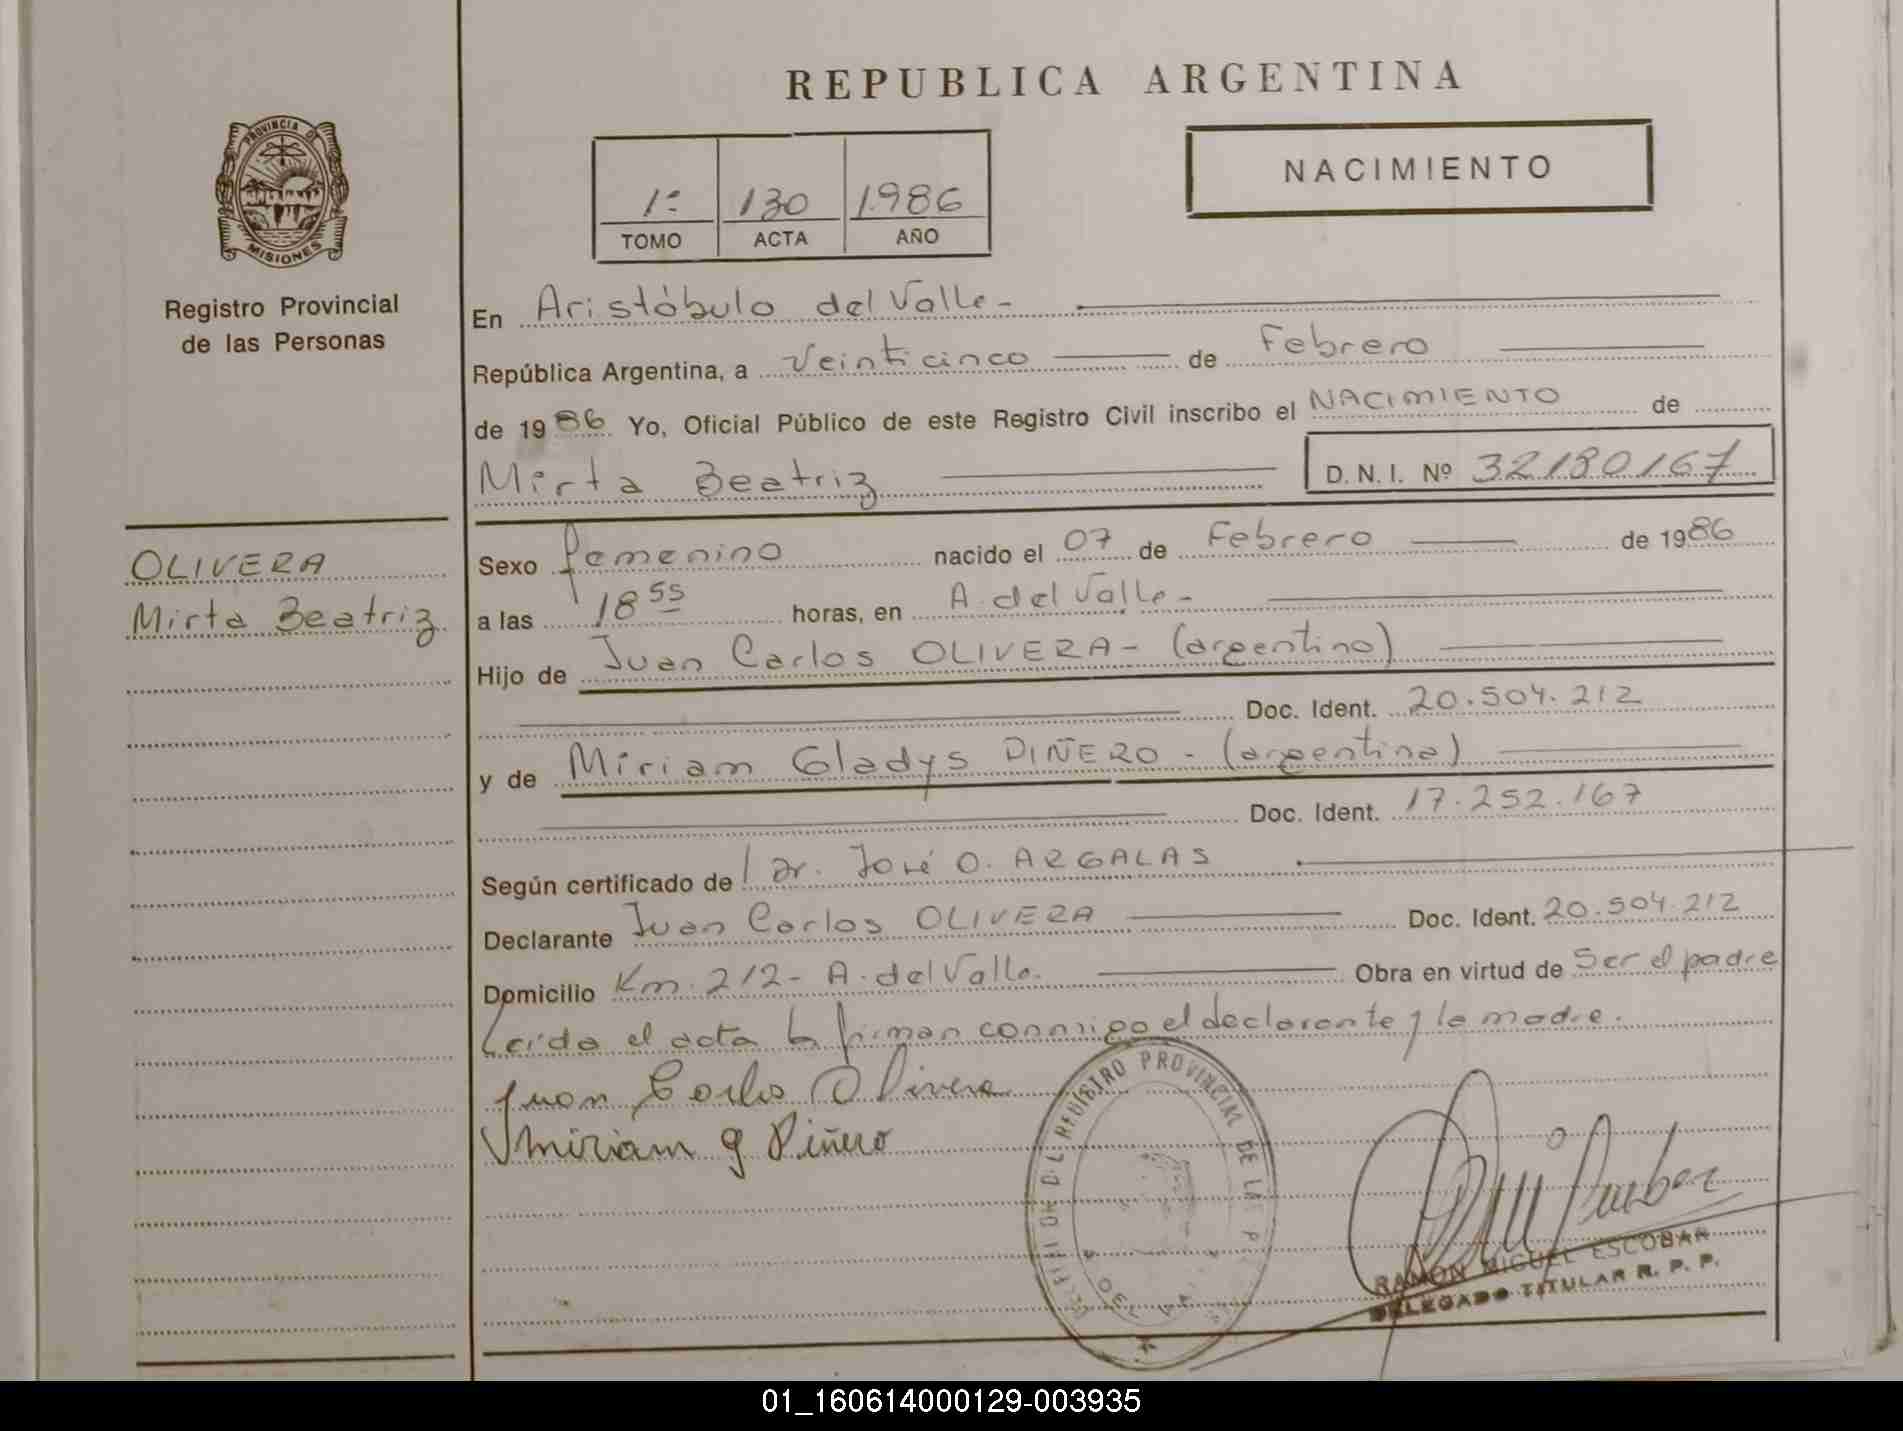 REPUBLICA ARGENTINA
PROVINCIA DE
MISIONES
Registro Provincial
de las Personas
1º 130 1986
TOMO ACTA AÑO
NACIMIENTO
En Aristóbulo del Valle-
República Argentina, a Veinticinco de Febrero
de 1986 Yo, Oficial Público de este Registro Civil inscribo el NACIMIENTO de
Mirta Beatriz D.N.I. Nº 32180167
OLIVERA
Mirta Beatriz
Sexo femenino nacido el 07 de Febrero de 1986
a las 18 55 horas, en A. del Valle-
Hijo de Juan Carlos OLIVERA- (argentino)
Doc. Ident. 20.504.212
y de Miriam Gladys PIÑERO - (argentina)
Doc. Ident. 17.252.167
Según certificado de Dr. José O. ARGALAS
Declarante Juan Carlos OLIVERA Doc. Ident. 20.504.212
Domicilio Km. 212- A. del Valle. Obra en virtud de Ser el padre
Leida el acta la firman conmigo el declarante y la madre.
Juan Carlos Olivera
Miriam G Piñero
REGISTRO PROVINCIAL DE LA
RAMON MIGUEL ESCOBAR
DELEGADO TITULAR R. P. P.
01_160614000129-003935